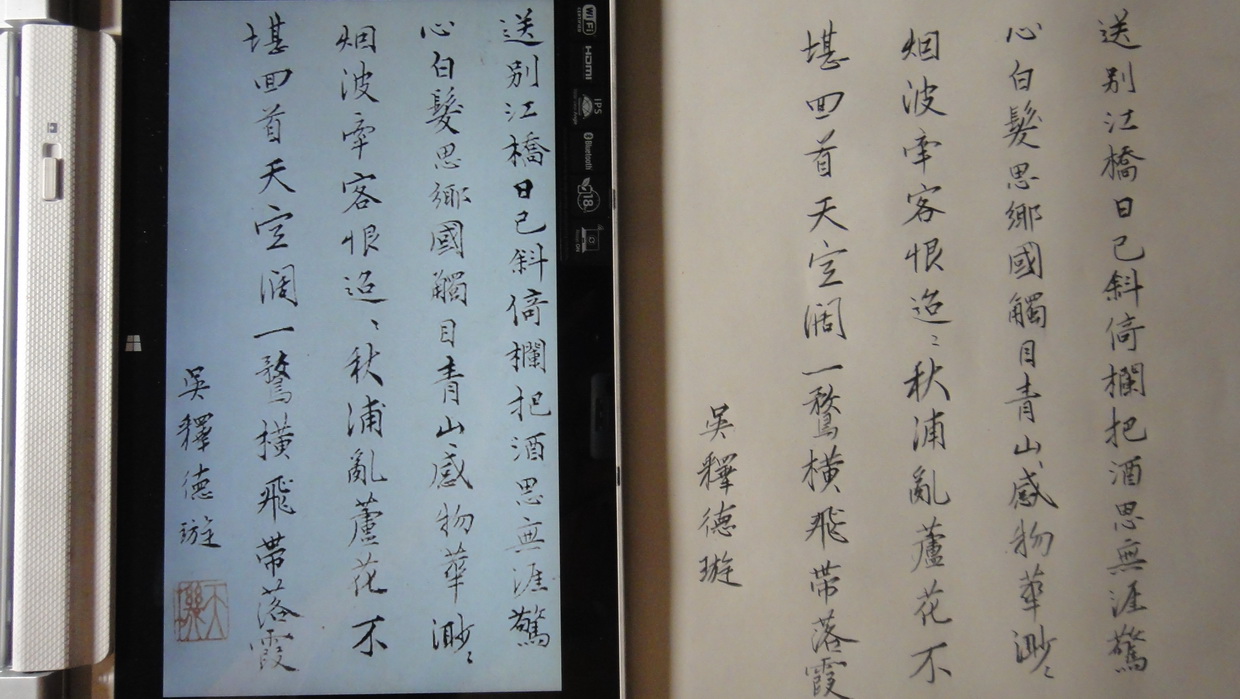 送別江橋日已斜倚欄把酒思無涯驚
心白髮思鄉國觸目青山感物華渺〻
烟波牽客恨迢〻秋浦亂蘆花不
堪囬首天空闊一鶩橫飛帶落霞
吳釋德璇
WiFi
HDMI
IPS
Bluetooth
18
送別江橋日已斜倚欄把酒思無涯驚
心白髮思鄉國觸目青山感物華渺〻
烟波牽客恨迢〻秋浦亂蘆花不
堪囬首天空闊一鶩橫飛帶落霞
吳釋德璇